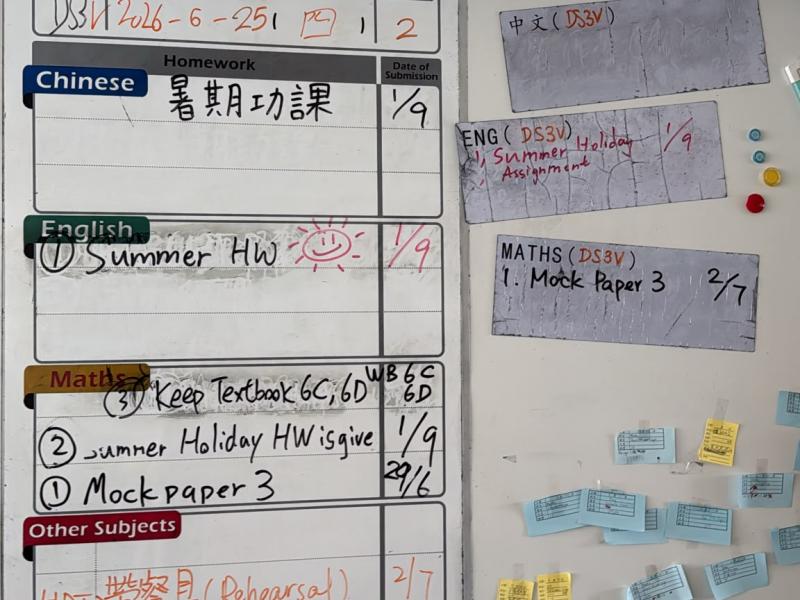 DS3V 2026-6-25 四 2
Homework Date of Submission
Chinese
暑期功課 1/9
English
① Summer HW 1/9
Maths
③ Keep Textbook 6C, 6D WB 6C 6D
② Summer Holiday HW is give 1/9
① Mock paper 3 29/6
Other Subjects
(Rehearsal) 2/7
中文(DS3V)
ENG(DS3V)
1, Summer Holiday 1/9
Assignment
MATHS(DS3V)
1. Mock Paper 3 2/7